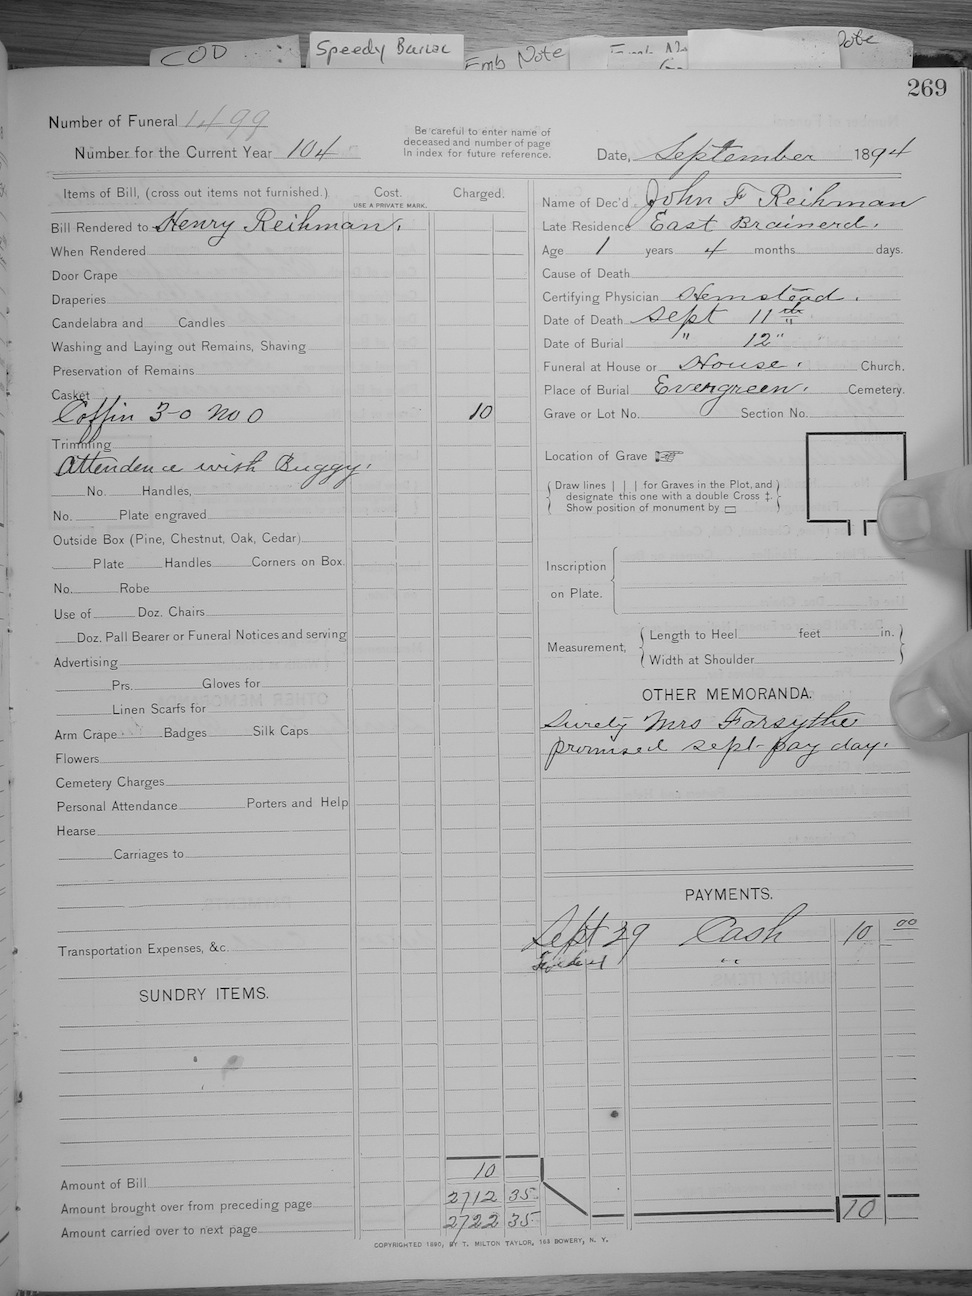 COD
Speedy Burial
Emb Note
269
Number of Funeral 1499
Number for the Current Year 104
Be careful to enter name of
deceased and number of page
In index for future reference.
Date, September 1894
Items of Bill, (cross out items not furnished.) Cost. Charged.
USE A PRIVATE MARK.
Bill Rendered to Henry Reihman.
When Rendered
Door Crape
Draperies
Candelabra and Candles
Washing and Laying out Remains, Shaving
Preservation of Remains
Casket
Coffin 3-0 No 0 10
Trimming
Attendence with Buggy.
No. Handles,
No. Plate engraved
Outside Box (Pine, Chestnut, Oak, Cedar)
Plate Handles Corners on Box.
No. Robe
Use of Doz. Chairs
Doz. Pall Bearer or Funeral Notices and serving
Advertising
Prs. Gloves for
Linen Scarfs for
Arm Crape Badges Silk Caps
Flowers
Cemetery Charges
Personal Attendance Porters and Help
Hearse
Carriages to
Transportation Expenses, &c.
SUNDRY ITEMS.
Amount of Bill 10
Amount brought over from preceding page 2712 35
Amount carried over to next page 2722 35
Name of Dec'd John F Reihman
Late Residence East Brainerd.
Age 1 years 4 months days.
Cause of Death
Certifying Physician Hemstead.
Date of Death Sept 11th
Date of Burial " 12 " "
Funeral at House or House. Church.
Place of Burial Evergreen. Cemetery.
Grave or Lot No. Section No.
Location of Grave ☞
Draw lines | | | for Graves in the Plot, and
designate this one with a double Cross ‡.
Show position of monument by ▭
Inscription
on Plate.
Measurement, Length to Heel feet in.
Width at Shoulder
OTHER MEMORANDA.
Surely Mrs Forsythe
promised sept-pay day.
PAYMENTS.
Sept 29 Cash 10 00
"
10
COPYRIGHTED 1890, BY T. MILTON TAYLOR, 163 BOWERY, N. Y.